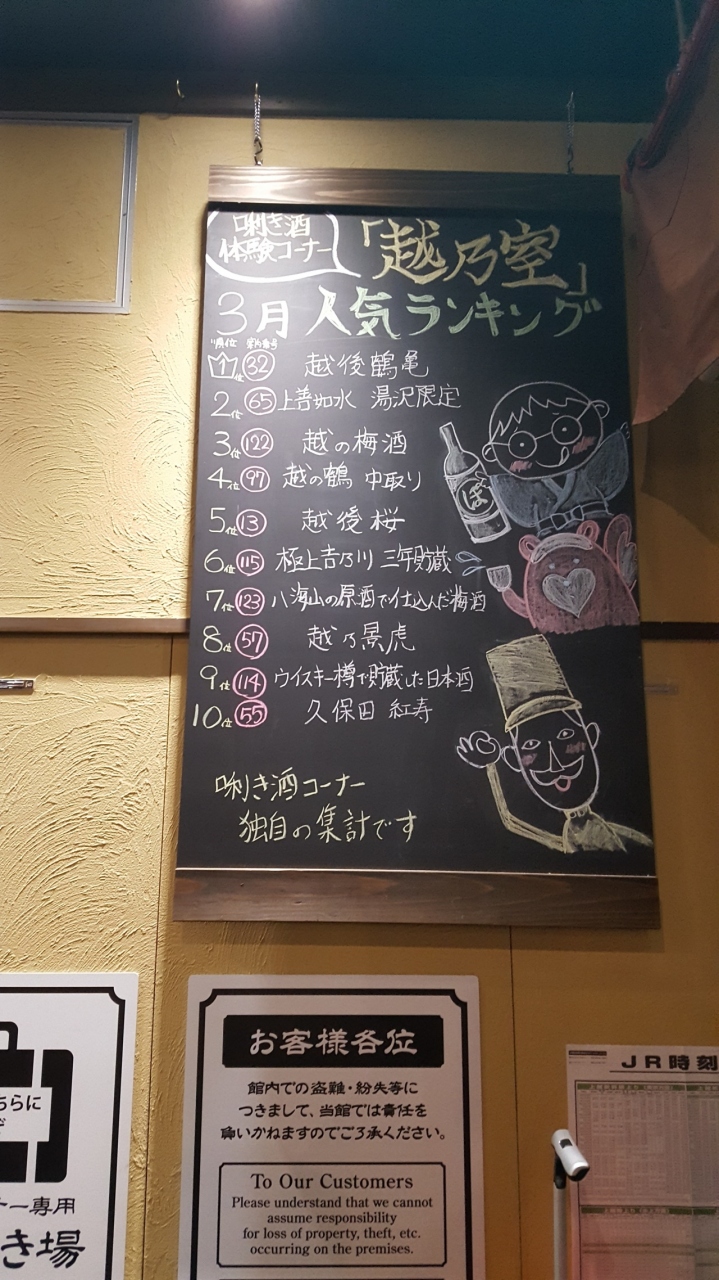 唎き酒
体験コーナー
「越乃室」
3月人気ランキング
順位 案内番号
1位 32 越後鶴亀
2位 65 上善如水 湯沢限定
3位 122 越の梅酒
4位 97 越の鶴 中取り
5位 13 越後桜
6位 115 極上吉乃川 三年貯蔵
7位 123 八海山の原酒で仕込んだ梅酒
8位 57 越乃景虎
9位 114 ウイスキー樽で貯蔵した日本酒
10位 55 久保田 紅寿
ぽ
唎き酒コーナー
独自の集計です
お客様各位
館内での盗難・紛失等に
つきまして、当館では責任を
負いかねますのでご了承ください。
To Our Customers
Please understand that we cannot
assume responsibility
for loss of property, theft, etc.
occurring on the premises.
ちらに
ナー専用
き場
JR時刻